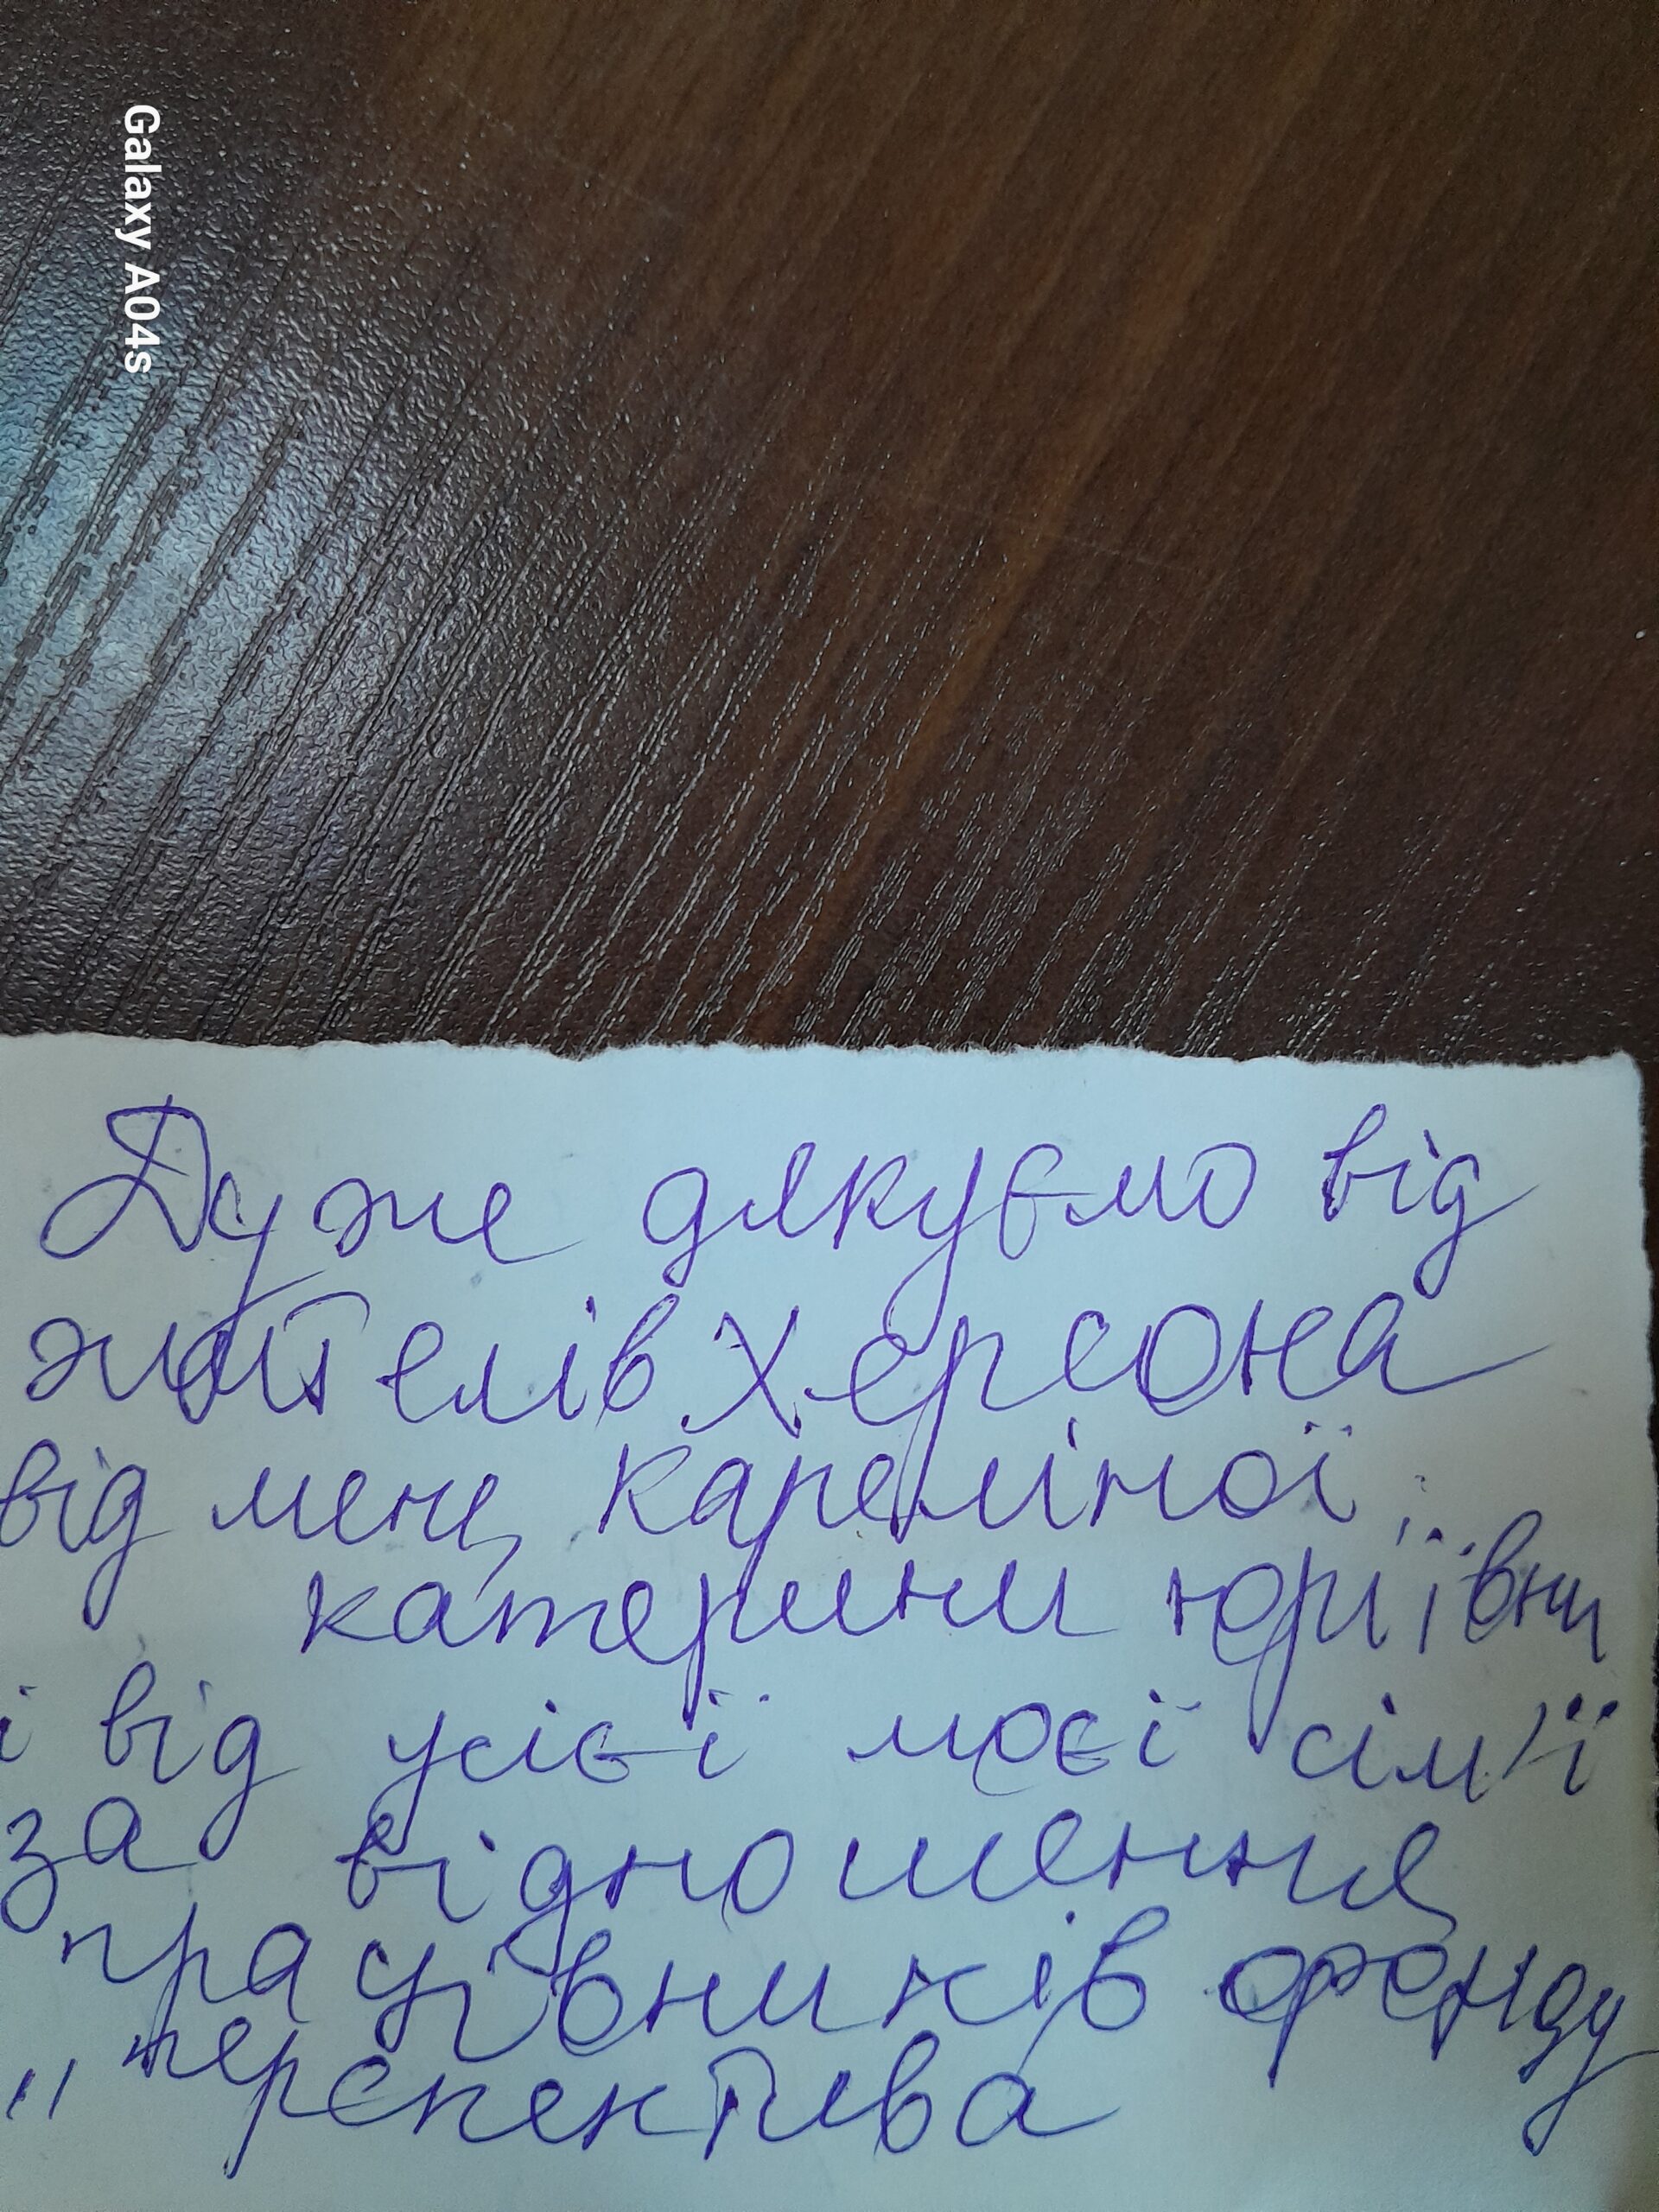 Galaxy A04s
Дуже дякуємо від
жителів Херсона
від мене Кареліної
катерини юріївни
і від усієї моєї сім'ї
за відношення
працівників фонду
"перспектива